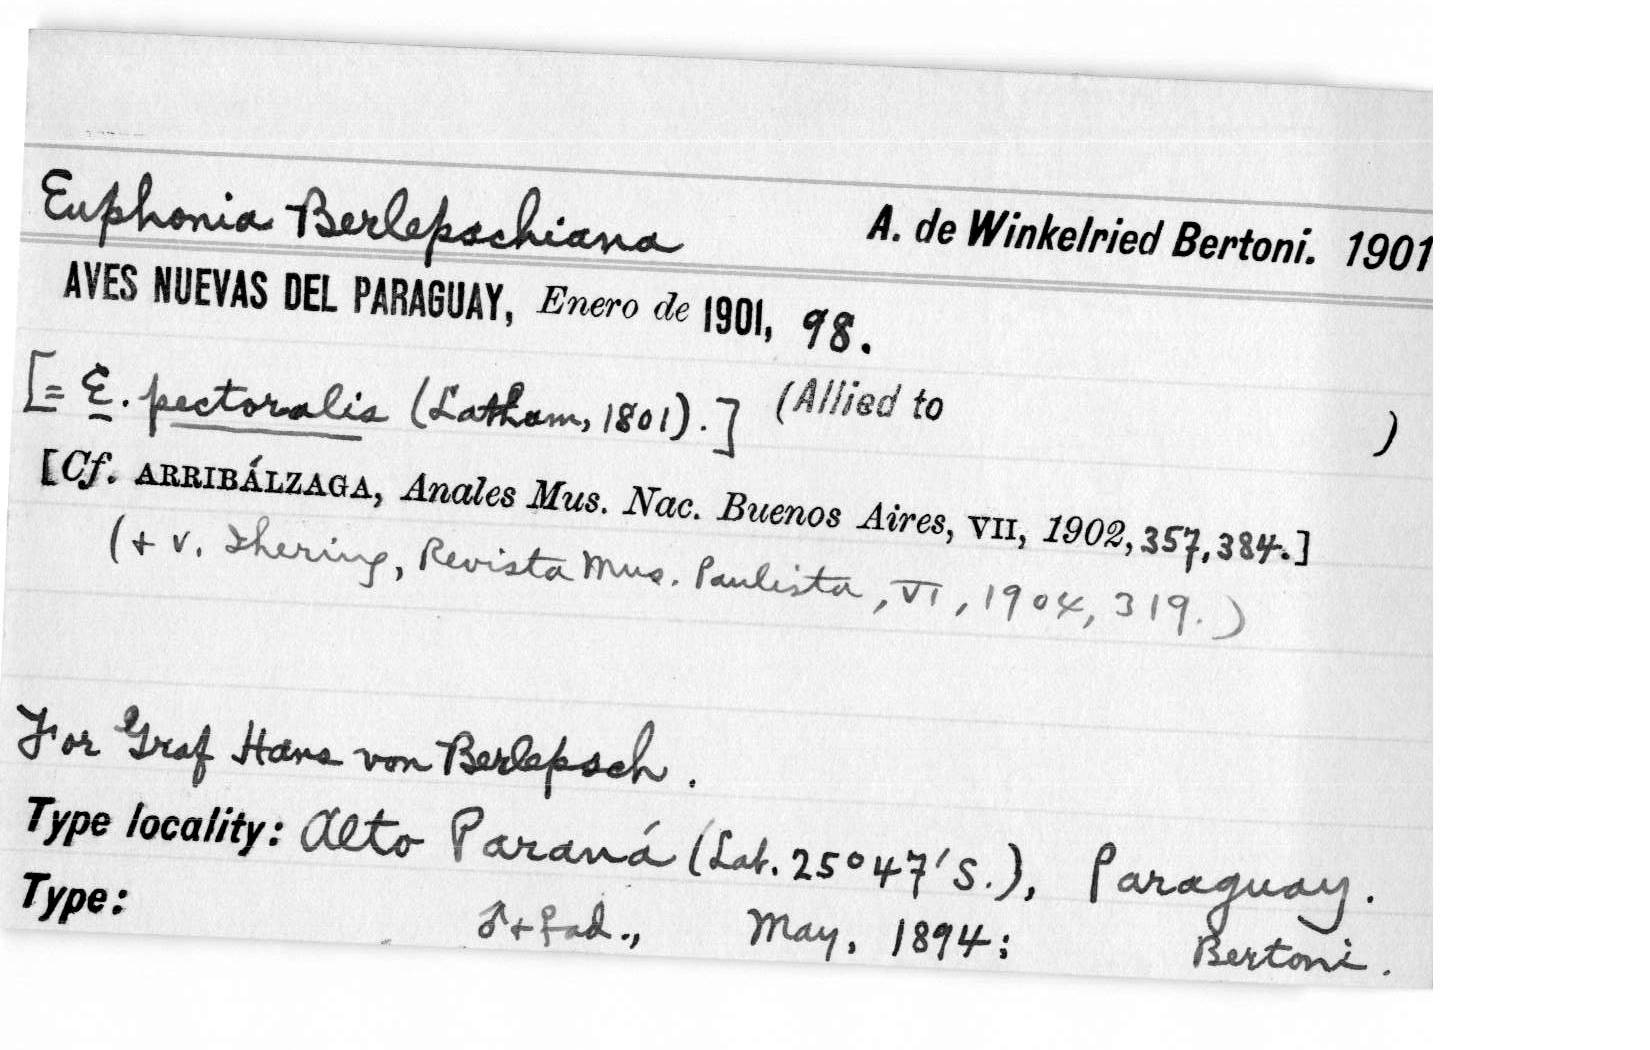 Euphonia Berlepschiana A. de Winkelried Bertoni. 1901
AVES NUEVAS DEL PARAGUAY, Enero de 1901, 98.
[= E. pectoralis (Latham, 1801).] (Allied to )
[Cf. ARRIBÁLZAGA, Anales Mus. Nac. Buenos Aires, VII, 1902, 357, 384.]
(+ v. Ihering, Revista Mus. Paulista, VI, 1904, 319.)
For Graf Hans von Berlepsch.
Type locality: Alto Paraná (Lat. 25°47'S.), Paraguay.
Type: ♂+♀ad., May, 1894; Bertoni.